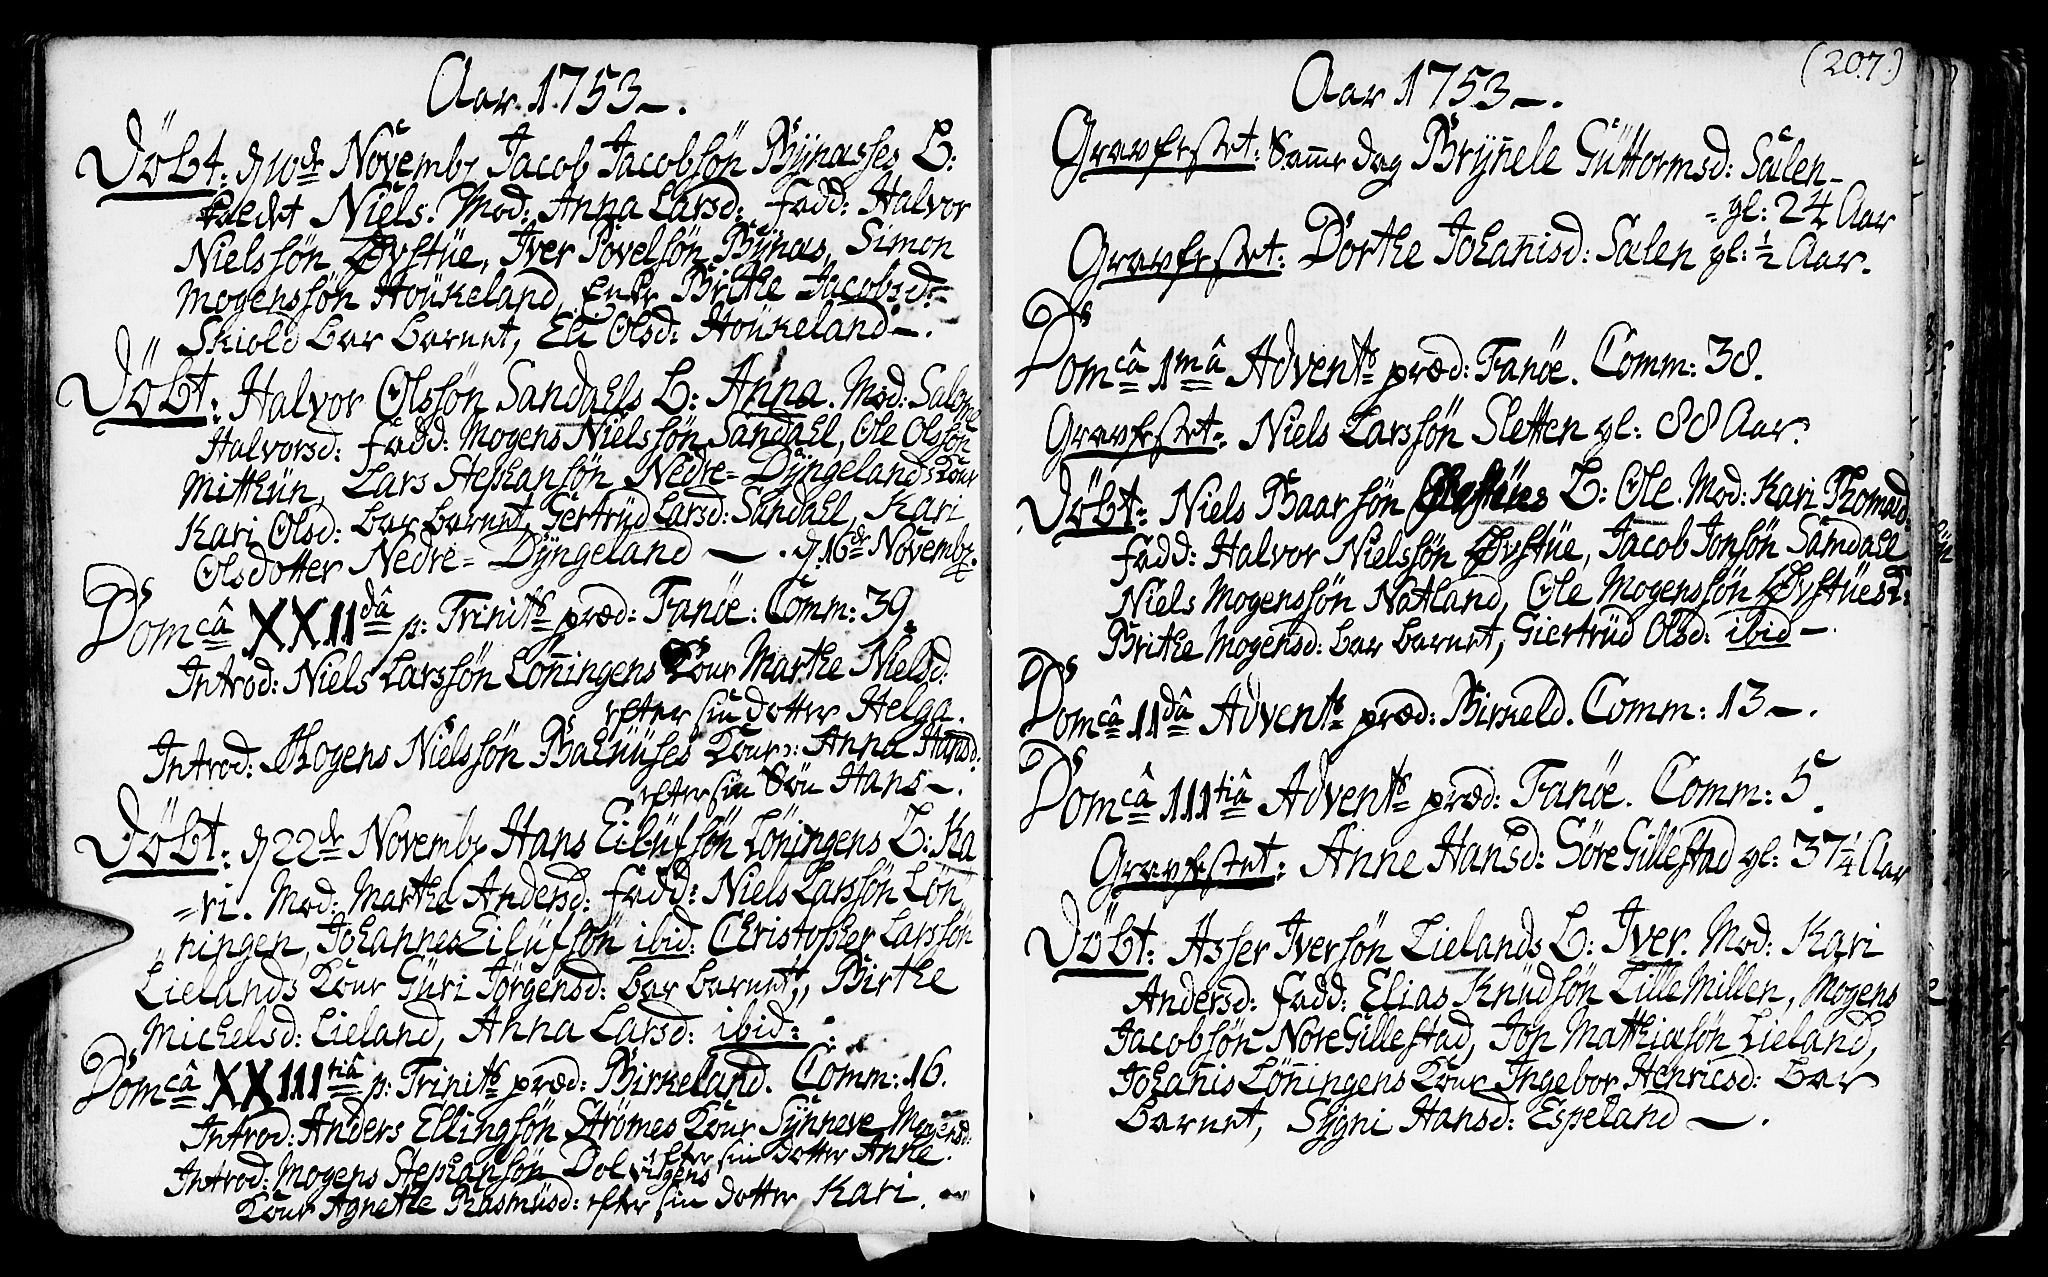 Aar 1753.
Döbt: d 10de Novemb: Jacob Jacobsön Bÿnæsses B:
kaldet Niels. Mod: Anna Larsd: Fadd: Halvor
Nielssön Øvstüe, Iver Povelsön Bÿnæs, Simon
Mogenssön Hoükeland, Enke Brithe Jacobsd:
Skiold bar barnet, Eli Olsd: Hoükeland.
Döbt: Halvor Olssön Sandahls B: Anna. Mod: Salome
Halvorsd: Fadd: Mogens Nielssön Sandahl, Ole Olssön
Mitthün, Lars Stephansön Nedre-Dÿngelands Kone
Kari Olsd: bar barnet, Gertrüd Larsd: Sandahl, Kari
Olsdotter Nedre-Dÿngeland. d. 16de Novemb.
Domcâ XXIIdâ p: Trinits præd: Fanöe: Comm: 39.
Introd: Niels Larssön Lonningens Kone Marthe Nielsd:
efter sin dotter Helga.
Introd: Mogens Nielssön Kone: Anna Hansd:
efter sin Sön Hans.
Döbt: d 22de Novemb Hans Eilüfsön Löningens B: Ka
=ri. Mod: Marthe Andersd: Fadd: Niels Larssön Lön
ningen, Johannes Eilüfsön ibid: Christopher Larssön
Lielands Kone Güri Jörgensd: bar barnet, Birthe
Michelsd: Lieland, Anna Larsd: ibid:
Domcâ XXIIItiâ p: Trinits præd: Birkeland. Comm: 16.
Introd: Anders Ellingsön Strömes Kone Sÿnneve Mogensd:
efter sin dotter Anna.
Introd: Mogens Stephansön Dolvigens
Kone Agnethe Rasmüsd: efter sin dotter Kari.
(207)
Aar 1753.
Gravfestet: Samme dag Brÿnnele Güttormsd: Sælen
gl: 24 Aar
Gravfestet: Dorthe Johanisd: Sælen gl: ½ Aar.
Domcâ 1mâ Advents præd: Fanöe. Comm: 38.
Gravfestet: Niels Larssön Sletten gl: 88 Aar.
Döbt: Niels Baarsön B: Ole. Mod: Kari Thomasd:
Fadd: Halvor Nielssön Øvstüe, Jacob Jonsön Sandahl
Niels Mogenssön Natland, Ole Mogenssön Øvstües K:
Brithe Mogensd: bar barnet, Giertrüd Olsd: ibid
Domcâ IIdâ Advents præd: Birkeld. Comm: 13.
Domcâ IIItiâ Advents præd: Fanöe. Comm: 5.
Gravfestet: Anne Hansd: SöreGillestad gl: 37¼ Aar
Döbt: Asser Iversön Lielands B: Iver. Mod: Kari
Andersd: Fadd: Elias Knüdsön LilleMillen, Mogens
Jacobsön NoreGillestad, Jon Matthiasön Lieland,
Johanis Löningens Kone Ingebor Henricsd: bar
barnet, Sÿgni Hansd: Espeland.